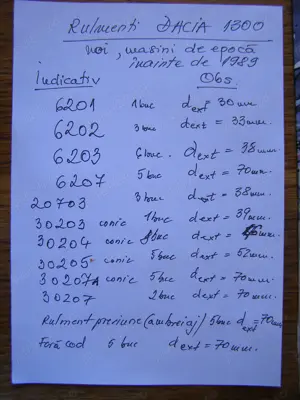 Rulmenti DACIA 1300
noi, masini de epocă
înainte de 1989
Indicativ Obs
6201 1buc dext 30mm
6202 3buc dext = 33mm.
6203 6buc. dext = 38mm.
6207 5buc dext = 70mm.
20703 3buc dext = 38mm.
30203 conic 1buc dext = 39mm.
30204 conic 8buc dext = mm.
30205 conic 5buc dext = 52mm.
30207A conic 5buc dext = 70mm.
30207 2buc dext = 70mm.
Rulment presiune (ambreiaj) 5buc dext = 70mm
Fară cod 5 buc dext = 70mm.